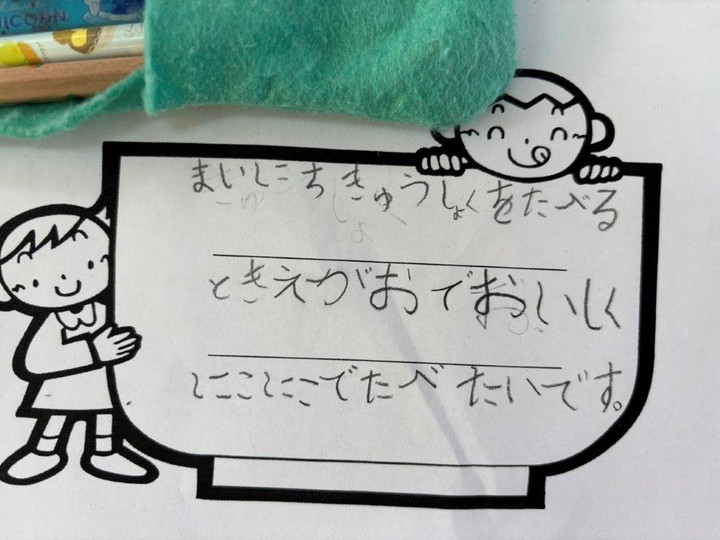 NiCOON
まいにちきゅうしょくをたべる
ときえがおでおいしく
にこにこでたべたいです。